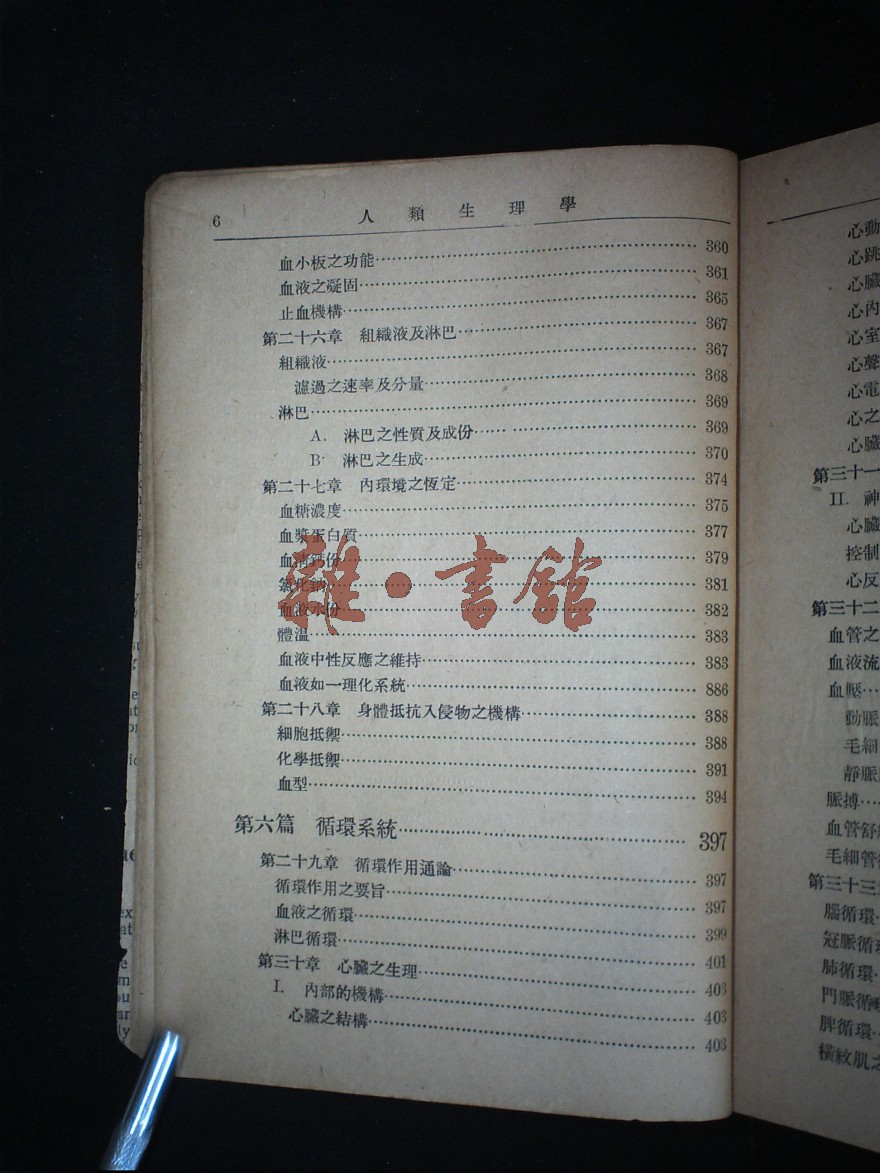 6 人類生理學
血小板之功能 360
血液之凝固 361
止血機構 365
第二十六章 組織液及淋巴 367
組織液 367
濾過之速率及分量 368
淋巴 369
A. 淋巴之性質及成份 369
B 淋巴之生成 370
第二十七章 內環境之恆定 374
血糖濃度 375
血漿蛋白質 377
血清鈣份 379
氯化鈉 381
血液水份 382
體温 383
血液中性反應之維持 383
血液如一理化系統 886
第二十八章 身體抵抗入侵物之機構 388
細胞抵禦 388
化學抵禦 391
血型 394
第六篇 循環系統 397
第二十九章 循環作用通論 397
循環作用之要旨 397
血液之循環 399
淋巴循環 401
第三十章 心臟之生理 403
I. 內部的機構 403
心臟之結構 403
雜·書館
心動
心跳
心臟
心內
心室
心聲
心電
心之
心臟
第三十一
II. 神
心臟
控制
心反
第三十二
血管之
血液流
血壓
動脈
毛細
靜脈
脈搏
血管舒
毛細管
第三十三
腦循環
冠脈循
肺循環
門脈循
脾循環
橫紋肌之